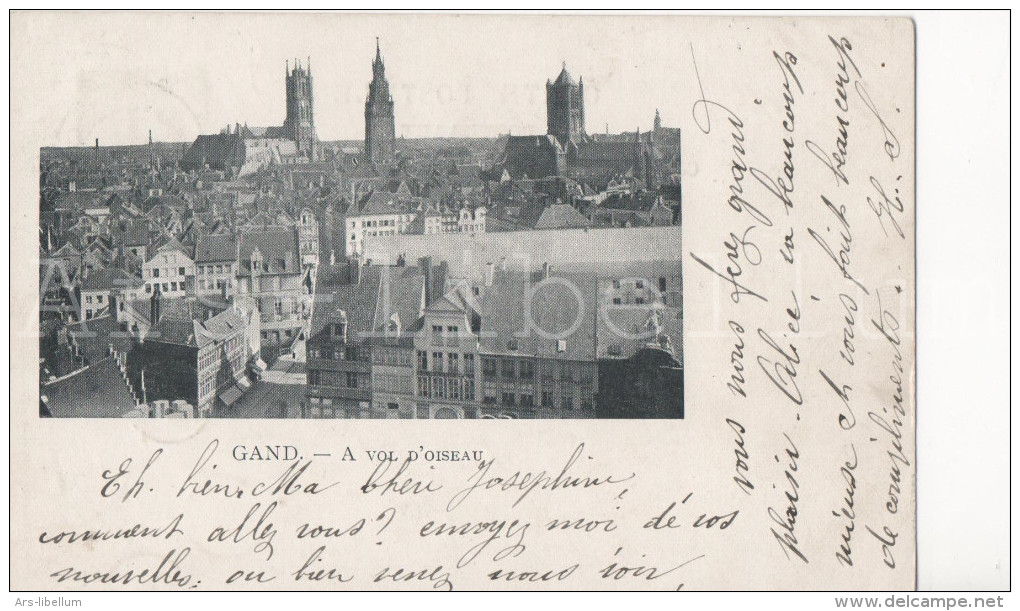 GAND. — A VOL D'OISEAU
Eh. bien, Ma Chère Josephine,
comment allez vous? envoyez moi dé vos
nouvelles. ou bien venez nous voir,
vous nous ferez grand
plaisir. Alice va beaucoup
mieuse et vous fait beaucoup
de compliments. H. S.
Ars-libellum
Ars-libellum
www.delcampe.net